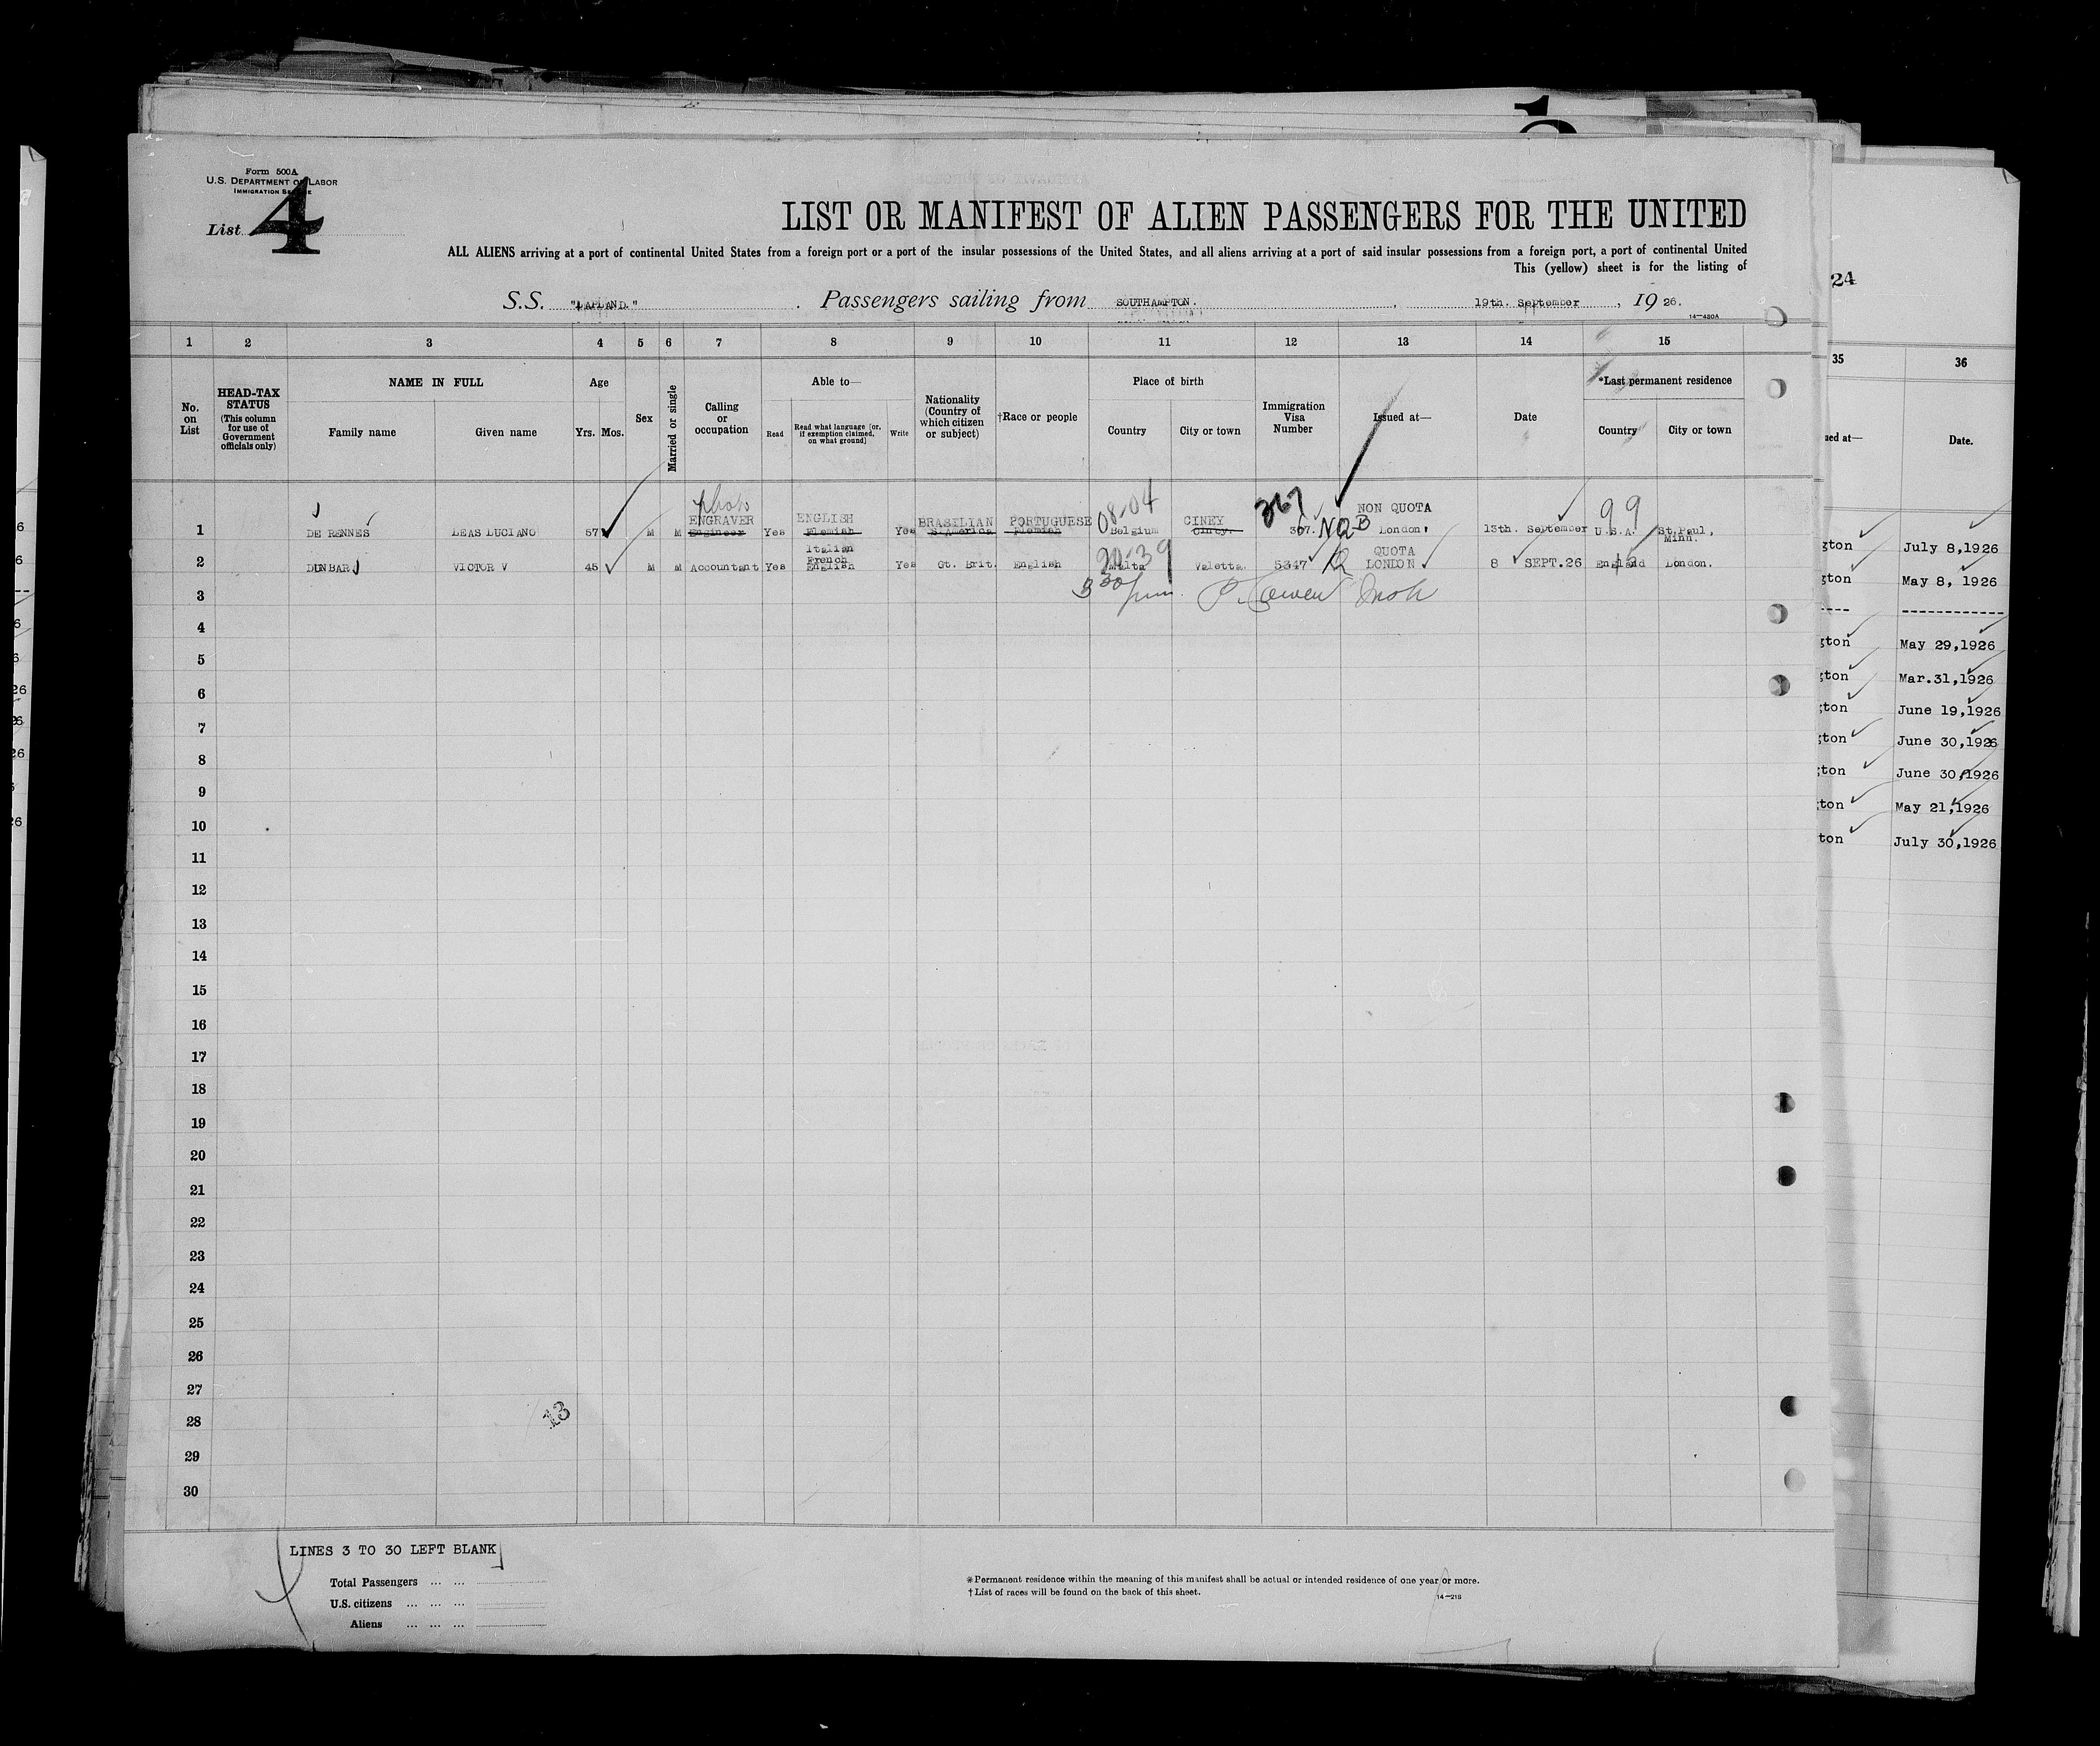 Form 500A
U.S. DEPARTMENT OF LABOR
IMMIGRATION SERVICE
List 4
LIST OR MANIFEST OF ALIEN PASSENGERS FOR THE UNITED
ALL ALIENS arriving at a port of continental United States from a foreign port or a port of the insular possessions of the United States, and all aliens arriving at a port of said insular possessions from a foreign port, a port of continental United
This (yellow) sheet is for the listing of
S.S. "LAPLAND." Passengers sailing from SOUTHAMPTON. 19th. September, 1926.
14-430A
1 2 3 4 5 6 7 8 9 10 11 12 13 14 15
No. on List
HEAD-TAX STATUS (This column for use of Government officials only)
NAME IN FULL
Family name Given name
Age
Yrs. Mos.
Sex
Married or single
Calling or occupation
Able to—
Read Read what language (or, if exemption claimed, on what ground) Write
Nationality (Country of which citizen or subject)
†Race or people
Place of birth
Country City or town
Immigration Visa Number
Issued at—
Date
*Last permanent residence
Country City or town
photo 08.04 367 NON QUOTA 99
ENGRAVER ENGLISH BRASILIAN PORTUGUESE CINEY
1 DE RENNES LEAS LUCIANO 57 M M Engineer Yes Flemish Yes S.America Flemish Belgium Cincy. 367. NQB London 13th. September U.S.A. St.Paul, Minn.
Italian 20-39 QUOTA
French
2 DUNBAR VICTOR V 45 M M Accountant Yes English Yes Gt. Brit. English Malta Valetta. 5347 Q LONDON 8 SEPT.26 England London.
3 3 30 pm. P. Cowen
4
5
6
7
8
9
10
11
12
13
14
15
16
17
18
19
20
21
22
23
24
25
26
27
28 13
29
30
LINES 3 TO 30 LEFT BLANK
Total Passengers ... ...
U.S. citizens ... ... ...
Aliens ... ... ...
*Permanent residence within the meaning of this manifest shall be actual or intended residence of one year or more.
†List of races will be found on the back of this sheet.
14-218
24
35 36
ued at— Date.
gton July 8,1926
gton May 8, 1926
---- ------------
gton May 29,1926
gton Mar.31,1926
gton June 19,1926
gton June 30,1926
gton June 30,1926
gton May 21,1926
ton July 30,1926